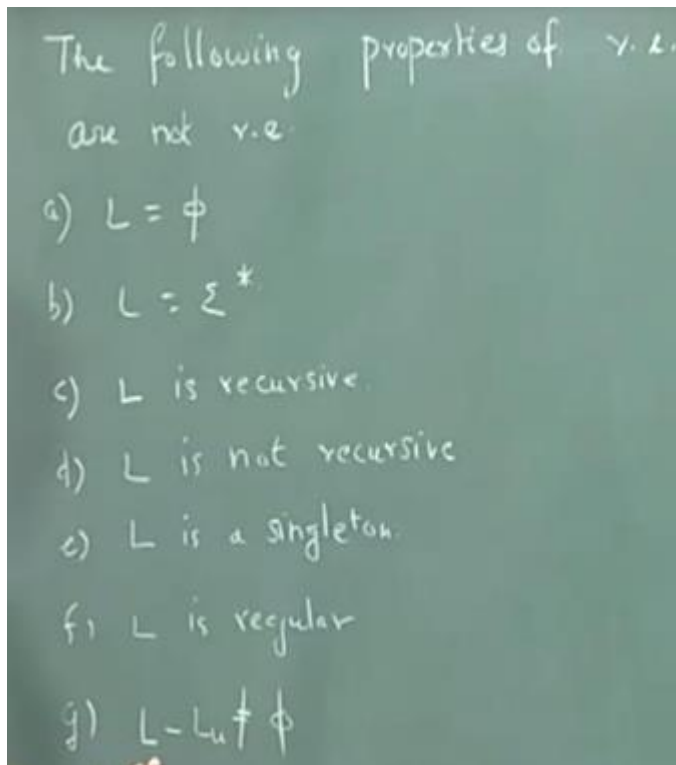 The following properties of r.e.
are not r.e.
a) L = φ
b) L = Σ*
c) L is recursive.
d) L is not recursive
e) L is a singleton.
f) L is regular
g) L - Lu ≠ φ